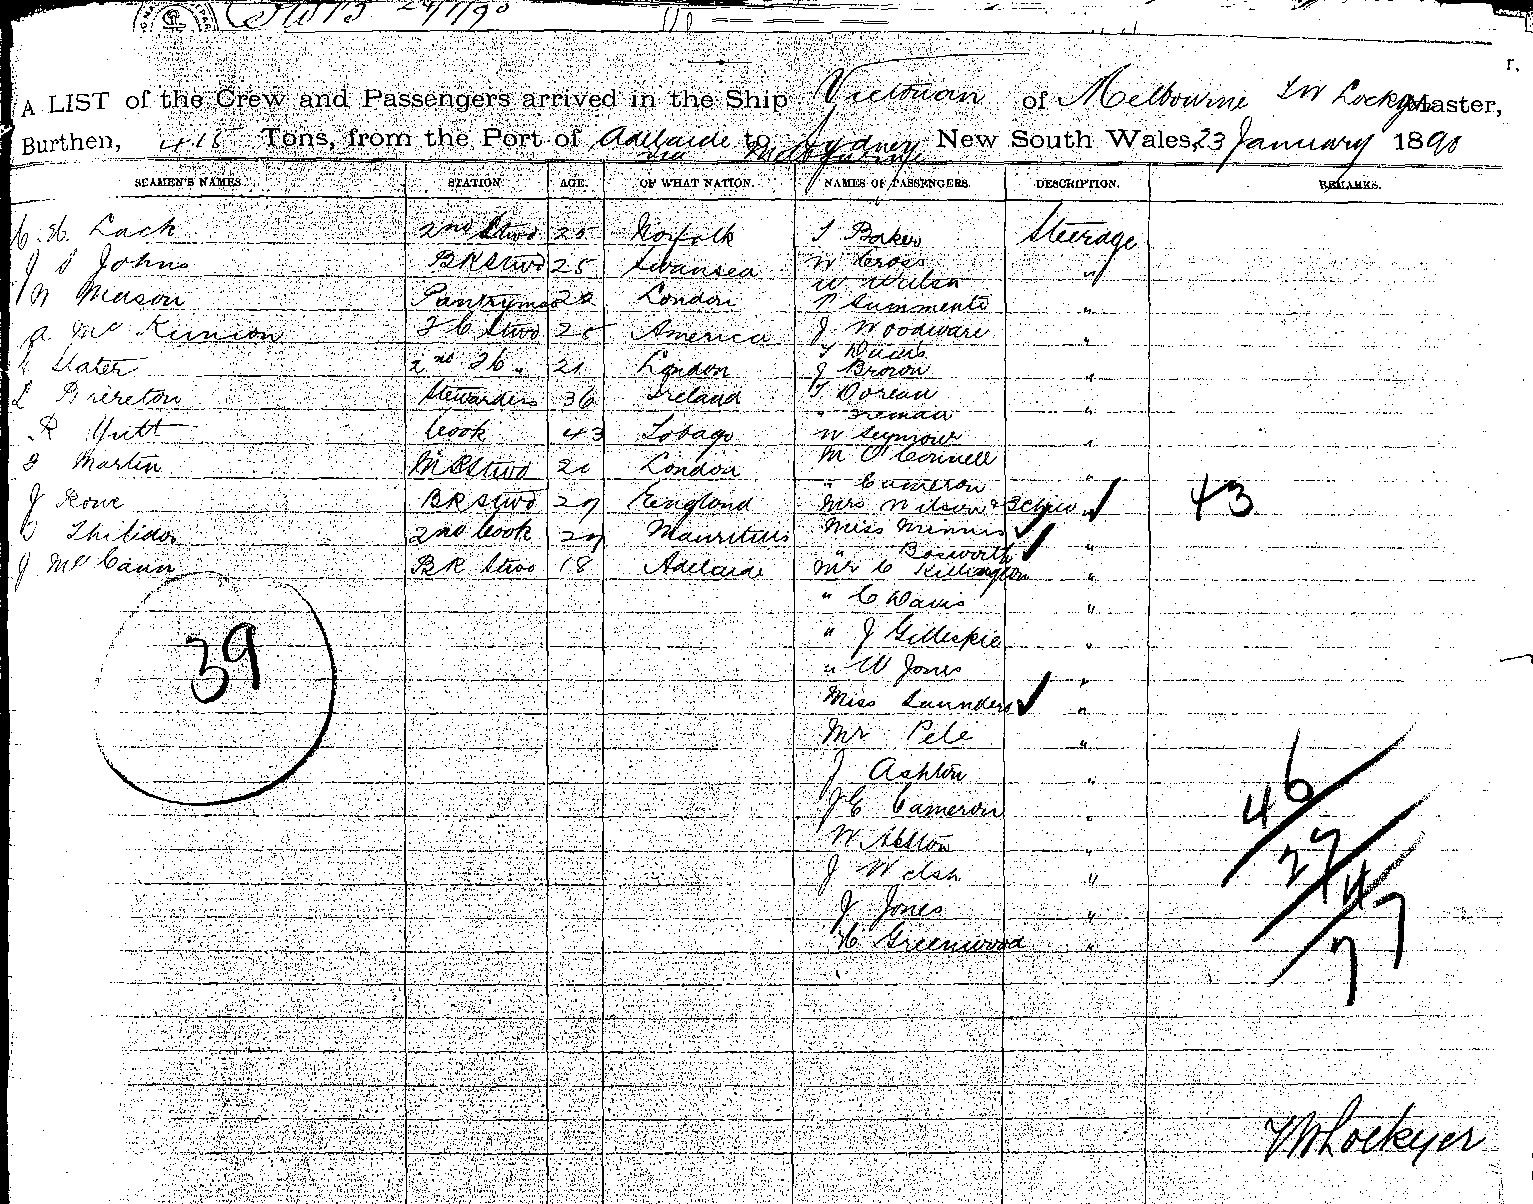 A LIST of the Crew and Passengers arrived in the Ship Victorian of Melbourne T W Lockyer Master,
Burthen, 415 Tons, from the Port of Adelaide to Sydney New South Wales 23 January 1890
via Melbourne
SEAMEN'S NAMES. STATION AGE. OF WHAT NATION. NAMES OF PASSENGERS. DESCRIPTION. REMARKS.
Lack 2nd Stwd 25 Norfolk T Baker Steerage
J S Johns BR Stwd 25 Swansea W Cross "
W Wilson
W Mason Pantryman 22 London Summente "
a Mc Kinnion F C Stwd 25 America J Woodware "
T Davis
Slater 2nd 21 London J Brown "
Brereton Stewardess 36 Ireland T Dorean "
" Freman
R Yutt Cook 43 Tobago W Seymour "
M O'Connell
Martin Stwd 21 London " Cameron "
J Rowe BR Stwd 29 England Mrs Wilson & 3 Chien " 43
2nd Cook 29 Mauritius Miss Minnis
" Bosworth "
J McCann BR Stwd 18 Adelaide Mr C Killington "
" C Davis "
" J Gillespie "
39 " W Jones "
Miss Saunders "
Mr Pele "
J Ashton "
J C Cameron "
46
W Alston "
27
J Welsh "
4
J Jones "
77
H Greenwood "
T W Lockyer